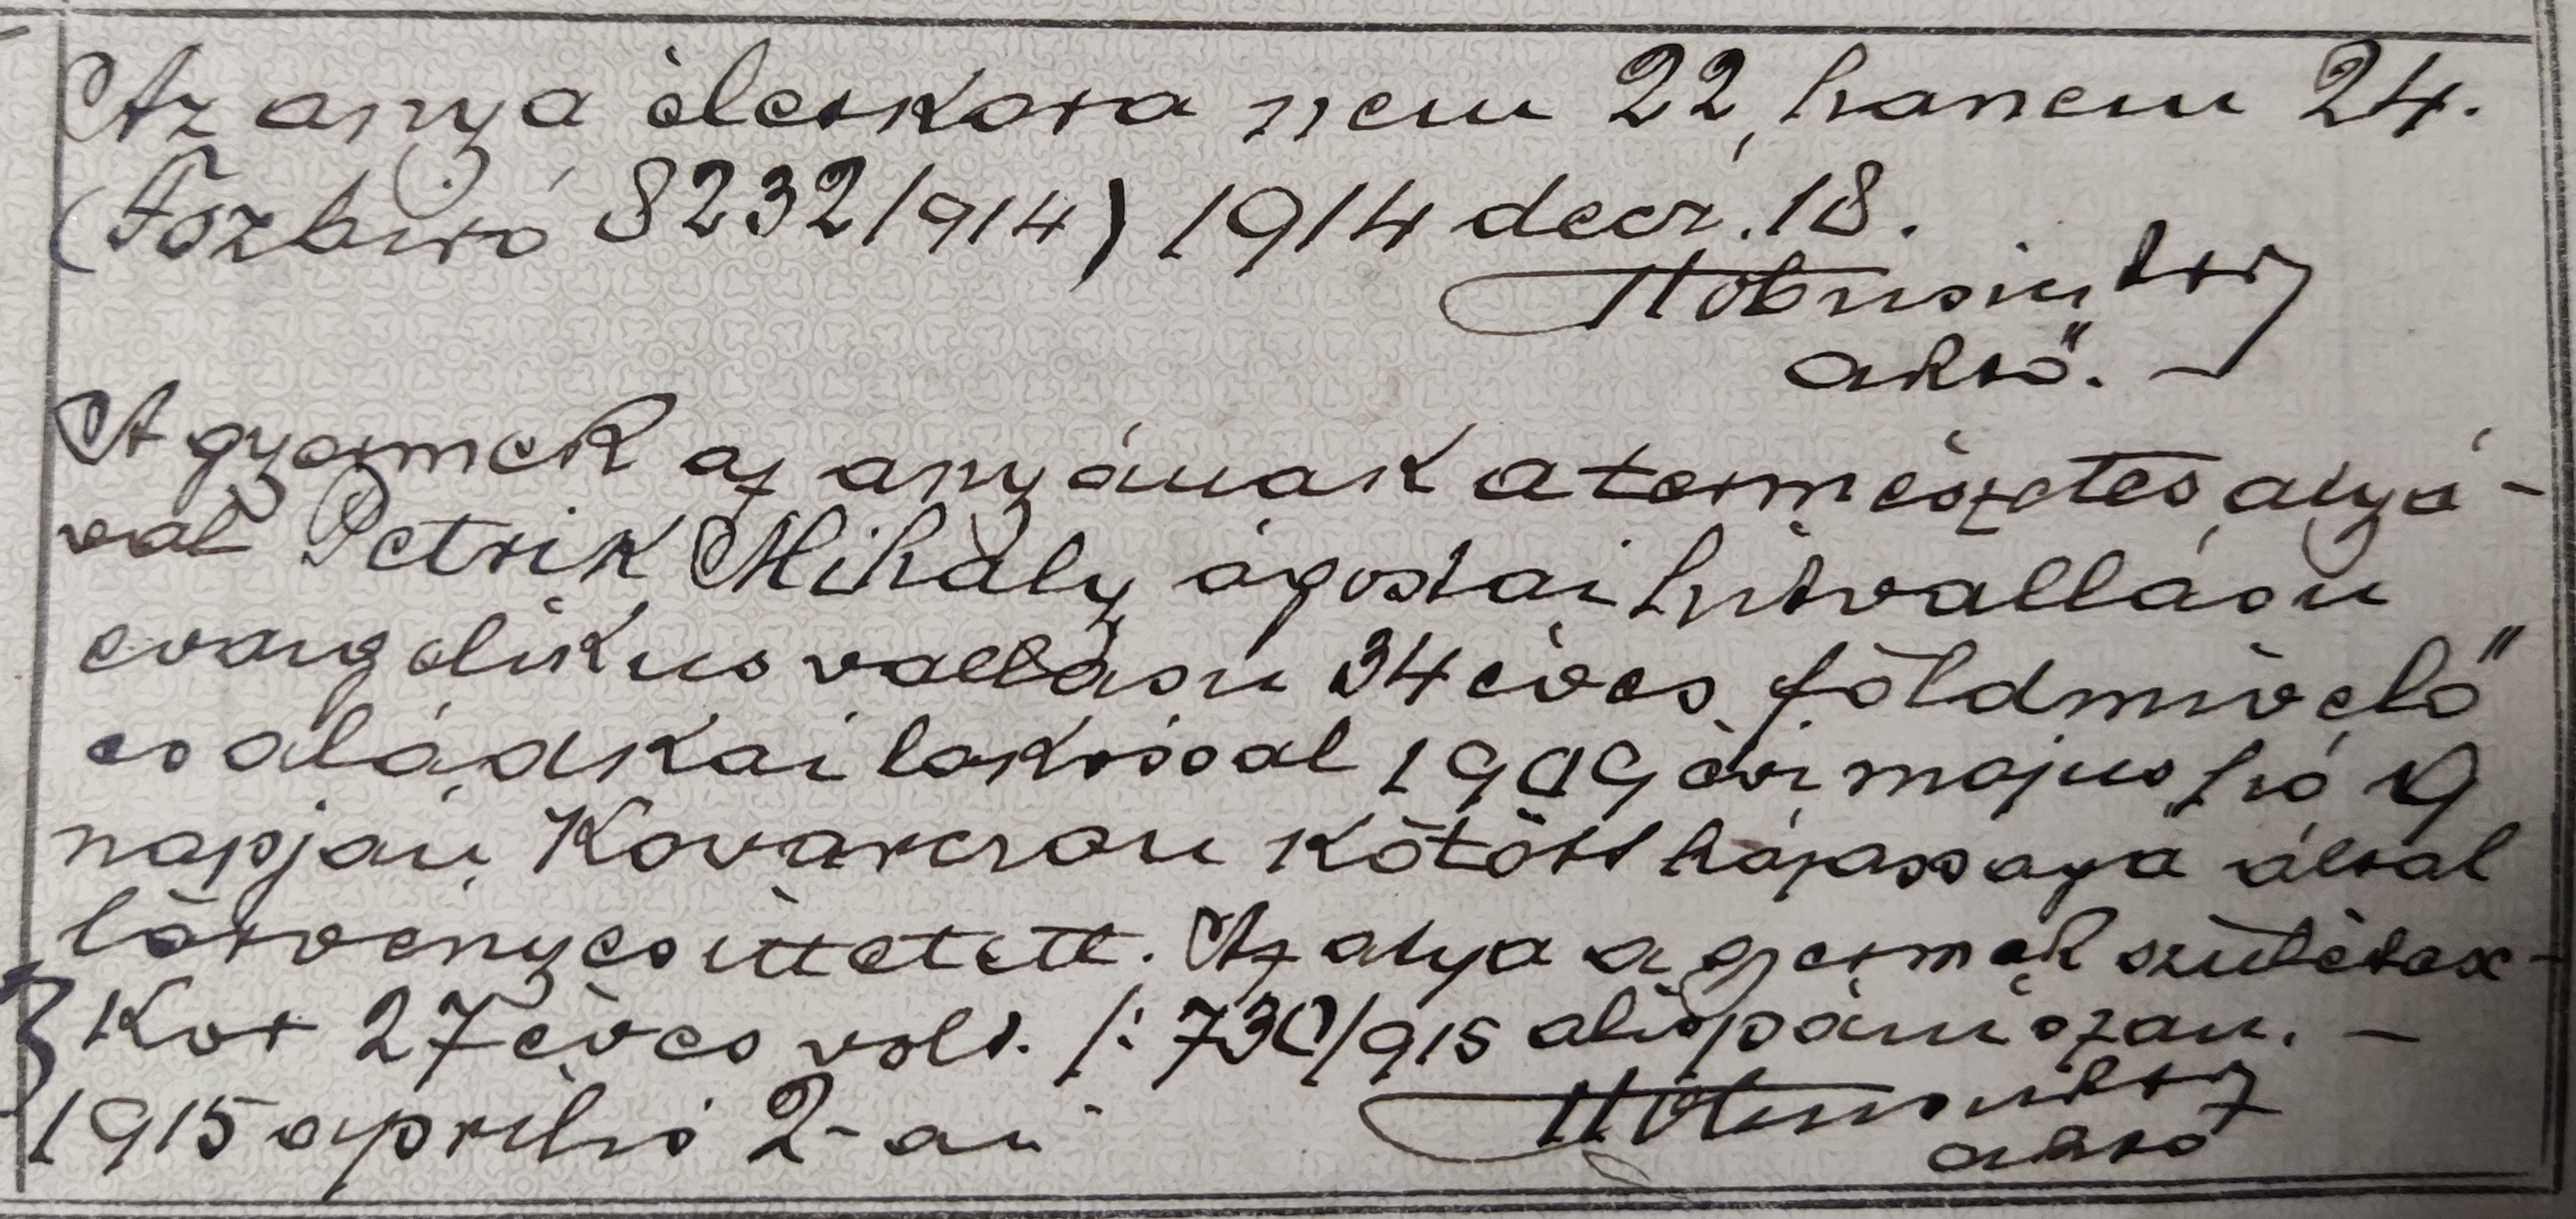 Az anya életkora nem 22, hanem 24.
(Főzbiró 8232/914) 1914 decz. 18.
akvő.
A gyermek az anyának a természetes atyá-
val Petrik Mihály ágostai hitvallásu
evangelikus vallásu 34 éves földmivelő
családkai lakossal 1909 évi május hó 19
napján Kovarczon kötött házassága által
törvényesittetett. Az atya a gyermek születése-
kor 27 éves volt. /: 730/915 alispáni szám. —
1915 április 2-án
akvő